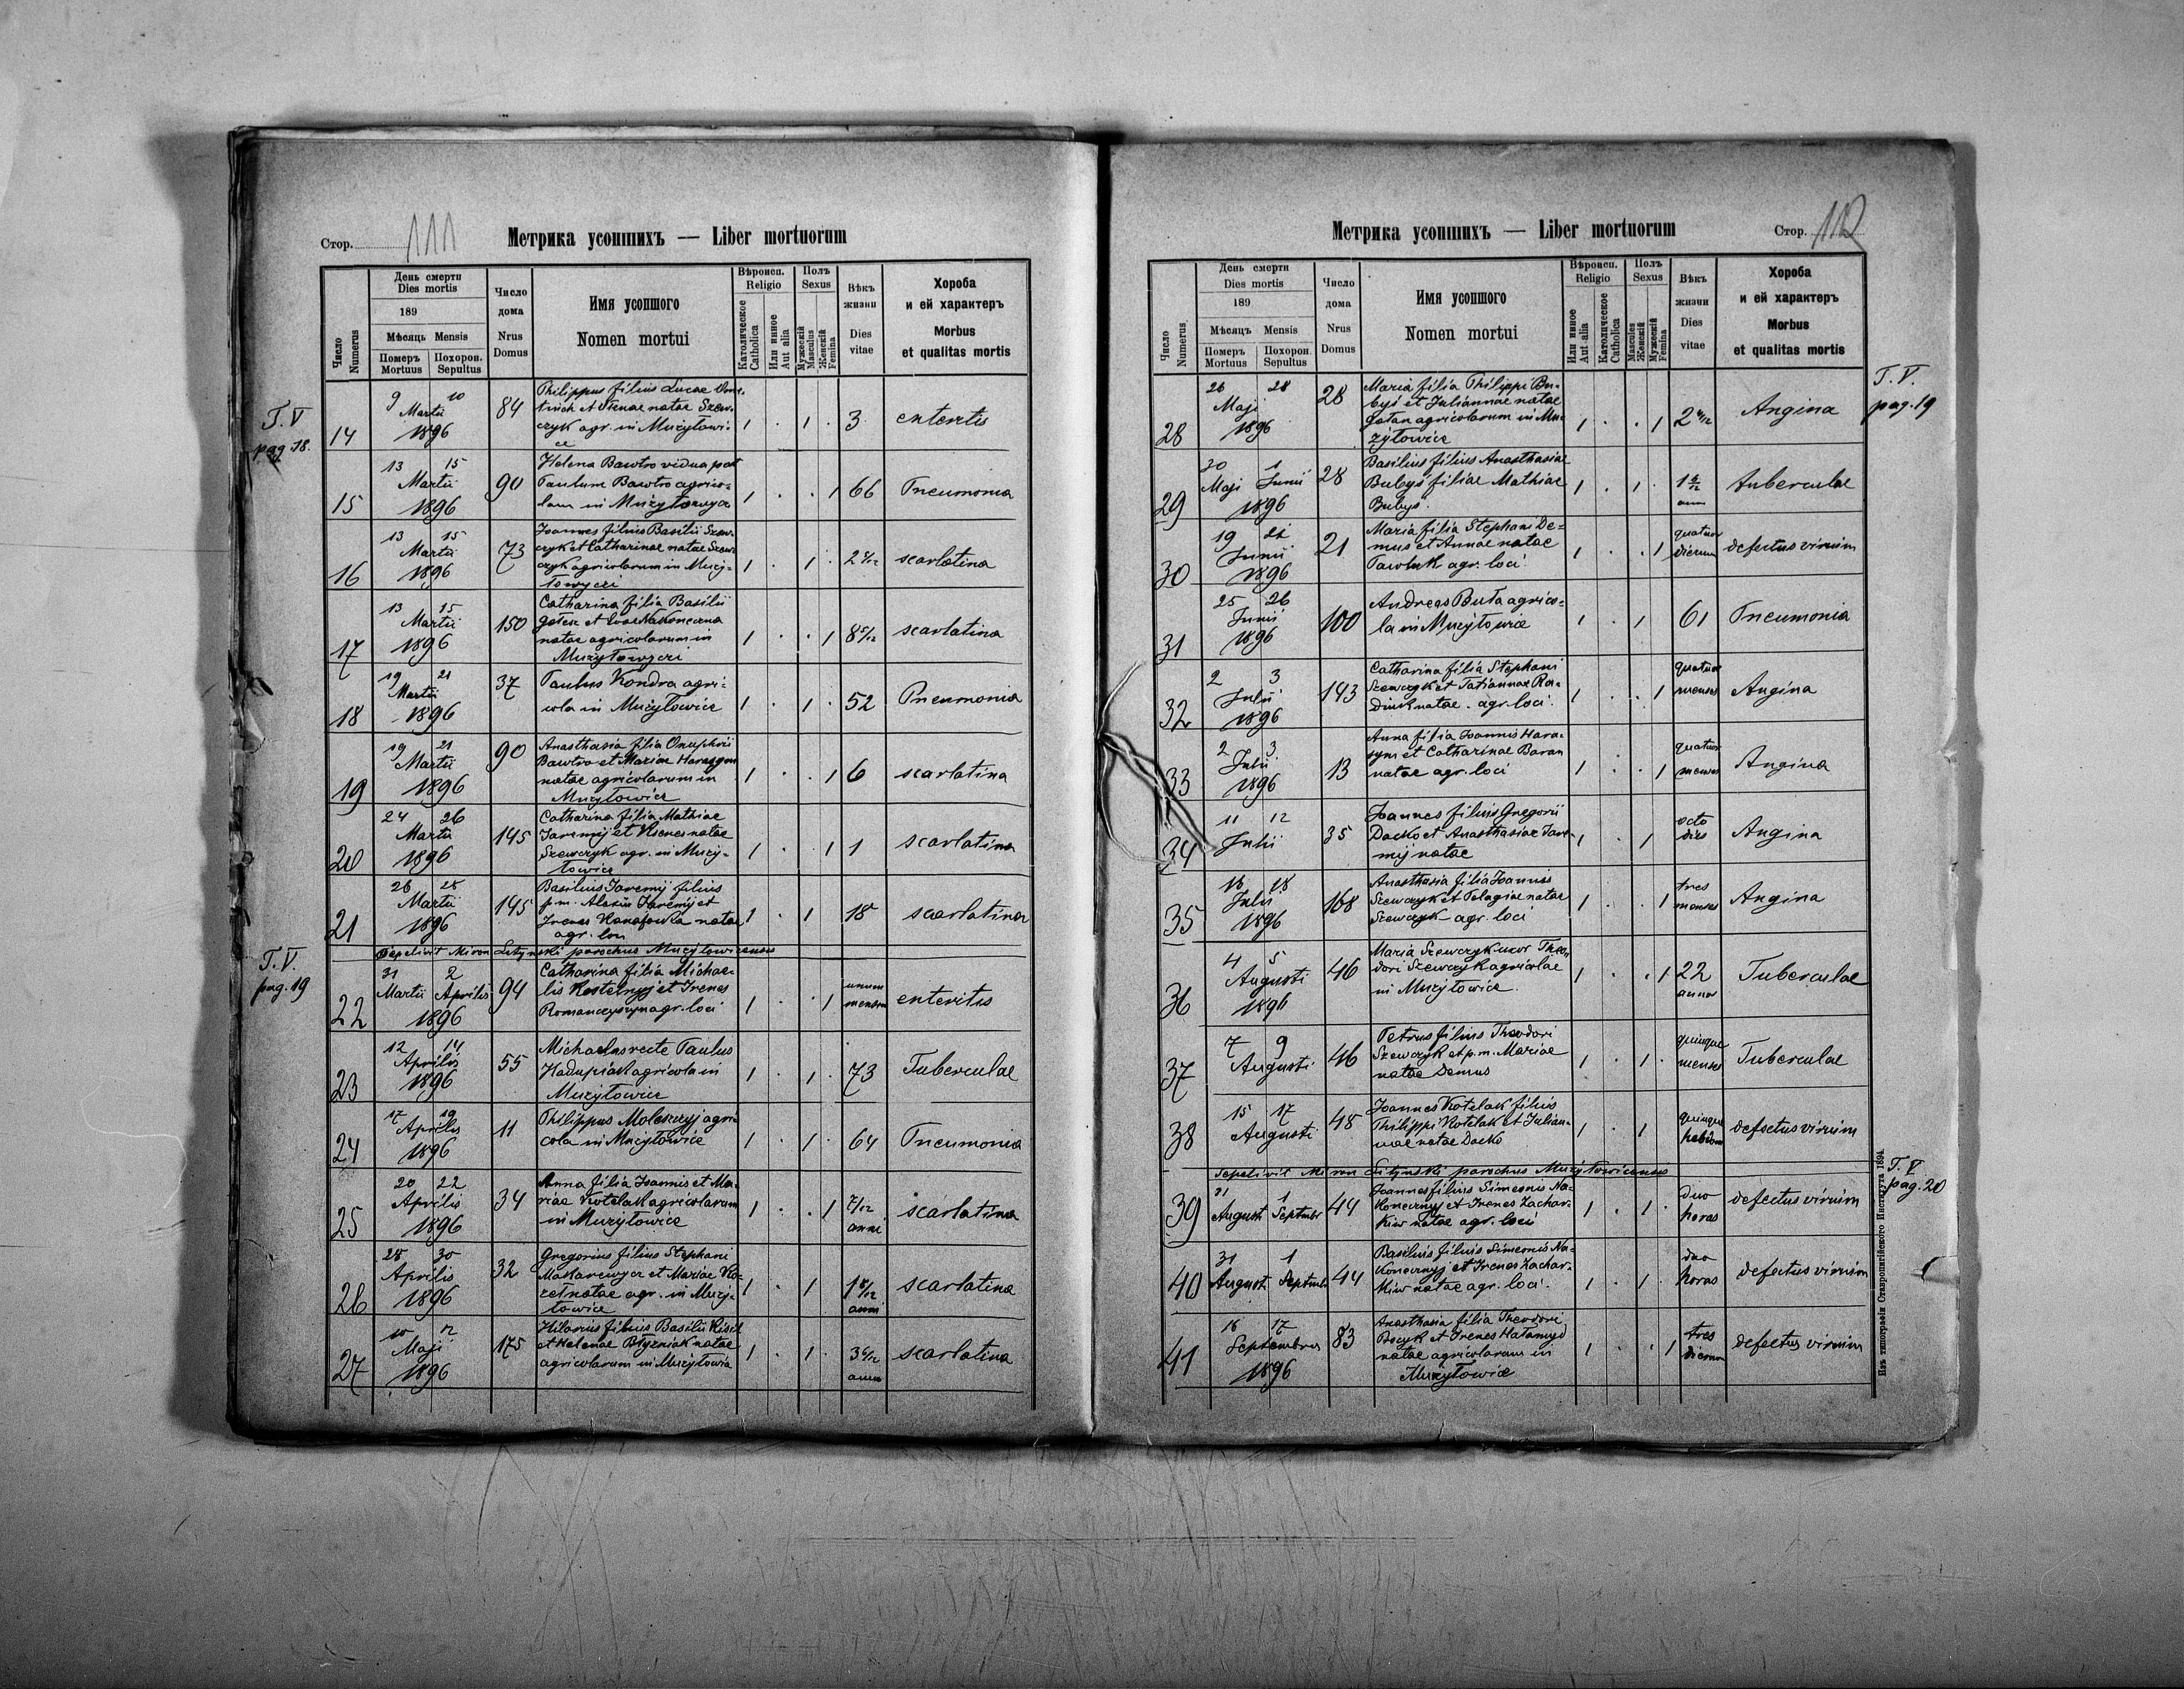 Стор. 111
Метрика усопшихъ — Liber mortuorum
Число
Numerus
День смерти
Dies mortis
189
Мѣсяцъ Mensis
Померъ
Mortuus
Похорон.
Sepultus
Число
дома
Nrus
Domus
Имя усопшого
Nomen mortui
Вѣроисп.
Religio
Католическое
Catholica
Или инное
Aut alia
Полъ
Sexus
Мужескій
Masculus
Женскій
Femina
Вѣкъ
жизни
Dies
vitae
Хороба
и ей характеръ
Morbus
et qualitas mortis
T. V
pag. 18.
14
9 10
Martii
1896
84
Philippus filius Lucae
et Irenae natae Szew-
czyk agr. in Mużyłowi-
ce
1 . 1 .
3
enteritis
15
13 15
Martii
1896
90
Helena Bawtro vidua post
Paulum Bawtro agrico-
lam in
1 . . 1
66
Pneumonia
16
13 15
Martii
1896
73
Joannes filius Basilii Szew-
czyk et Catharinae natae Szew-
czyk agricolarum in Muży-
1 . 1 .
scarlatina
17
13 15
Martii
1896
150
Catharina filia Basilii
et Evae Nakoneczna
natae agricolarum in
1 . . 1
scarlatina
18
19 21
Martii
1896
37
Paulus Kondra agri-
cola in Mużyłowice
1 . 1 .
52
Pneumonia
19
19 21
Martii
1896
90
Anasthasia filia Onuphrii
Bawtro et Mariae Harasym
natae agricolarum in
Mużyłowice
1 . . 1
6
scarlatina
20
24 26
Martii
1896
145
Catharina filia Mathiae
Jaremij et natae
Szewczyk agr. in Muży-
łowice
1 . 1
1
scarlatina
21
26 28
Martii
1896
145
Basilius Jaremij filius
p.m. Jaremij et
Irenes natae
agr. loci
1 . 1
18
scarlatina
Sepelivit Miron Lityński parochus Mużyłowicensis
T. V.
pag. 19
22
31 2
Martii Aprilis
1896
94
Catharina filia Michae-
lis Kostelnyj et Irenes
Romanczyszyn agr. loci
1 . . 1
unum
mensem
enteritis
23
12 14
Aprilis
1896
55
Michael recte Paulus
Hadupiak agricola in
Mużyłowice
1 . 1 .
73
Tuberculae
24
17 19
Aprilis
1896
11
Philippus Moleszczyj agri-
cola in Mużyłowice
1 . 1 .
64
Pneumonia
25
20 22
Aprilis
1896
34
Anna filia Joannis et Ma-
riae Kotelak agricolarum
in Mużyłowice
1 . . 1
7/12
anni
scarlatina
26
28 30
Aprilis
1896
32
Gregorius filius Stephani
et Mariae
natae agr. in Muży-
łowice
1 . 1
anni
scarlatina
27
10 12
Maji
1896
175
Hilarius filius Basilii Kisil
et Helenae natae
agricolarum in Mużyłowice
1 . 1 .
scarlatina
Метрика усопшихъ — Liber mortuorum
Стор. 112
Число
Numerus
День смерти
Dies mortis
189
Мѣсяцъ Mensis
Померъ
Mortuus
Похорон.
Sepultus
Число
дома
Nrus
Domus
Имя усопшого
Nomen mortui
Вѣроисп.
Religio
Или инное
Aut alia
Католическое
Catholica
Полъ
Sexus
Masculus
Женскій
Мужескій
Femina
Вѣкъ
жизни
Dies
vitae
Хороба
и ей характеръ
Morbus
et qualitas mortis
T. V.
pag. 19
28
26 28
Maji
1896
28
Maria filia Philippi Bu-
byś et Juliannae natae
agricolarum in Mu-
żyłowice
1 . . 1
Angina
29
30 1
Maji Junii
1896
28
Basilius filius Anasthasiae
Bubyś filiae Mathiae
Bubyś
1 . 1 .
tuberculae
30
19 21
Junii
1896
21
Maria filia Stephani De-
mus et Annae natae
Pawluk agr. loci
1 . . 1
quatuor
dierum
defectus virium
31
25 26
Junii
1896
100
Andreas Buta agrico-
la in Mużyłowice
1 . 1
61
Pneumonia
32
2 3
Julii
1896
143
Catharina filia Stephani
Szewczyk et Tatiannae
natae agr. loci
1 . . 1
quatuor
menses
Angina
33
2 3
Julii
1896
13
Anna filia Joannis Hara-
sym et Catharinae Baran
natae agr. loci
1 . . 1
quatuor
menses
Angina
34
11 12
Julii
35
Joannes filius Gregorii
Dacko et Anasthasiae Jare-
mij natae
1 . 1
octo
dies
Angina
35
16 18
Julii
1896
168
Anasthasia filia Joannis
Szewczyk et Pelagiae natae
Szewczyk agr. loci
1 . . 1
tres
menses
Angina
36
4 5
Augusti
1896
46
Maria Szewczyk uxor Theo-
dori Szewczyk agricolae
in Mużyłowice
1 . . 1
22
annos
Tuberculae
37
7 9
Augusti
46
Petrus filius Theodori
Szewczyk et p.m. Mariae
natae Demus
1 . 1 .
quinque
menses
Tuberculae
38
15 17
Augusti
48
Joannes Kotelak filius
Philippi Kotelak et Julian-
nae natae Dacko
1 . 1
quinque
hebdom
defectus virium
Sepelivit Miron Lityński parochus Mużyłowicensis
T. V
pag. 20
39
31 1
August Septembr
44
Joannes filius Simeonis Na-
konecznyj et Irenes Zachar-
kiw natae agr. loci
1 . 1 .
duo
horas
defectus virium
40
31 1
August Septembr
44
Basilius filius Simeonis Na-
konecznyj et Irenes Zachar-
kiw natae agr. loci
1 . 1 .
duo
horas
defectus virium
41
16 17
Septembris
1896
83
Anasthasia filia Theodori
et Irenes
natae agricolarum in
Mużyłowice
1 . . 1
tres
dierum
defectus virium
Изъ типографіи Ставропигійского Института 1894.